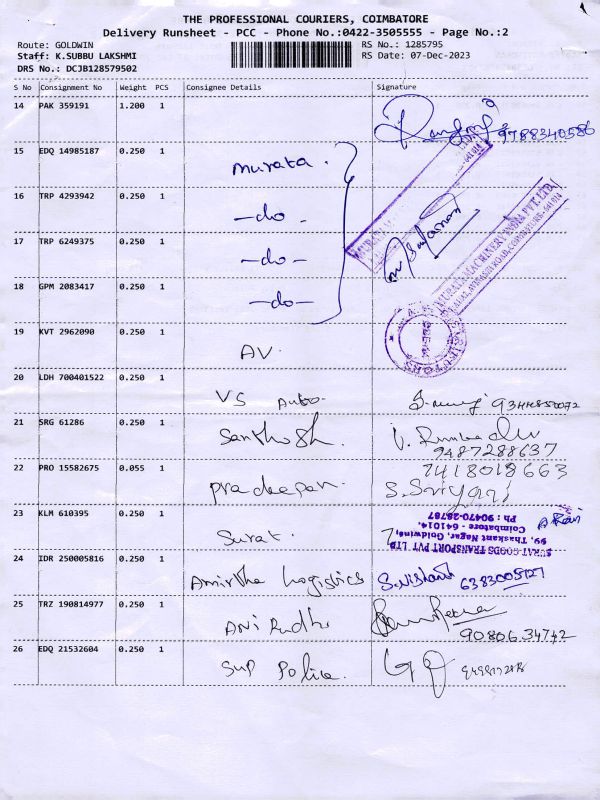 THE PROFESSIONAL COURIERS, COIMBATORE
Delivery Runsheet - PCC - Phone No.:0422-3505555 - Page No.:2
Route: GOLDWIN
Staff: K.SUBBU LAKSHMI
DRS No.: DCJB128579502
RS No.: 1285795
RS Date: 07-Dec-2023
S No Consignment No Weight PCS Consignee Details Signature
14 PAK 359191 1.200 1
9788340586
15 EDQ 14985187 0.250 1 Murata.
16 TRP 4293942 0.250 1 -do-
17 TRP 6249375 0.250 1 -do-
18 GPM 2083417 0.250 1 -do-
MURATA MACHINERY INDIA PVT. LTD.
19 KVT 2962090 0.250 1 AV.
20 LDH 700401522 0.250 1 VS Auto.
21 SRG 61286 0.250 1 Santhosh.
9487288637
22 PRO 15582675 0.055 1 Pradeepan. S. Sriyani
7418018663
23 KLM 610395 0.250 1 Surat.
SURAT GOODS TRANSPORT PVT LTD
99, Thaskant Nagar, Goldwins,
Coimbatore - 641014.
Ph : 90470-28787
24 IDR 250005816 0.250 1 Amirtha Logistics S. Nishanth
25 TRZ 190814977 0.250 1 Anirudh
9080634742
26 EDQ 21532604 0.250 1 Sup Police.